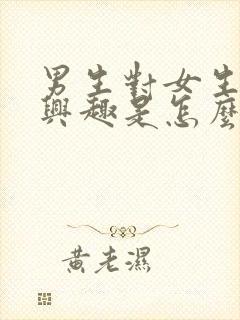 男生對女生
興趣是怎麼
黃老濕